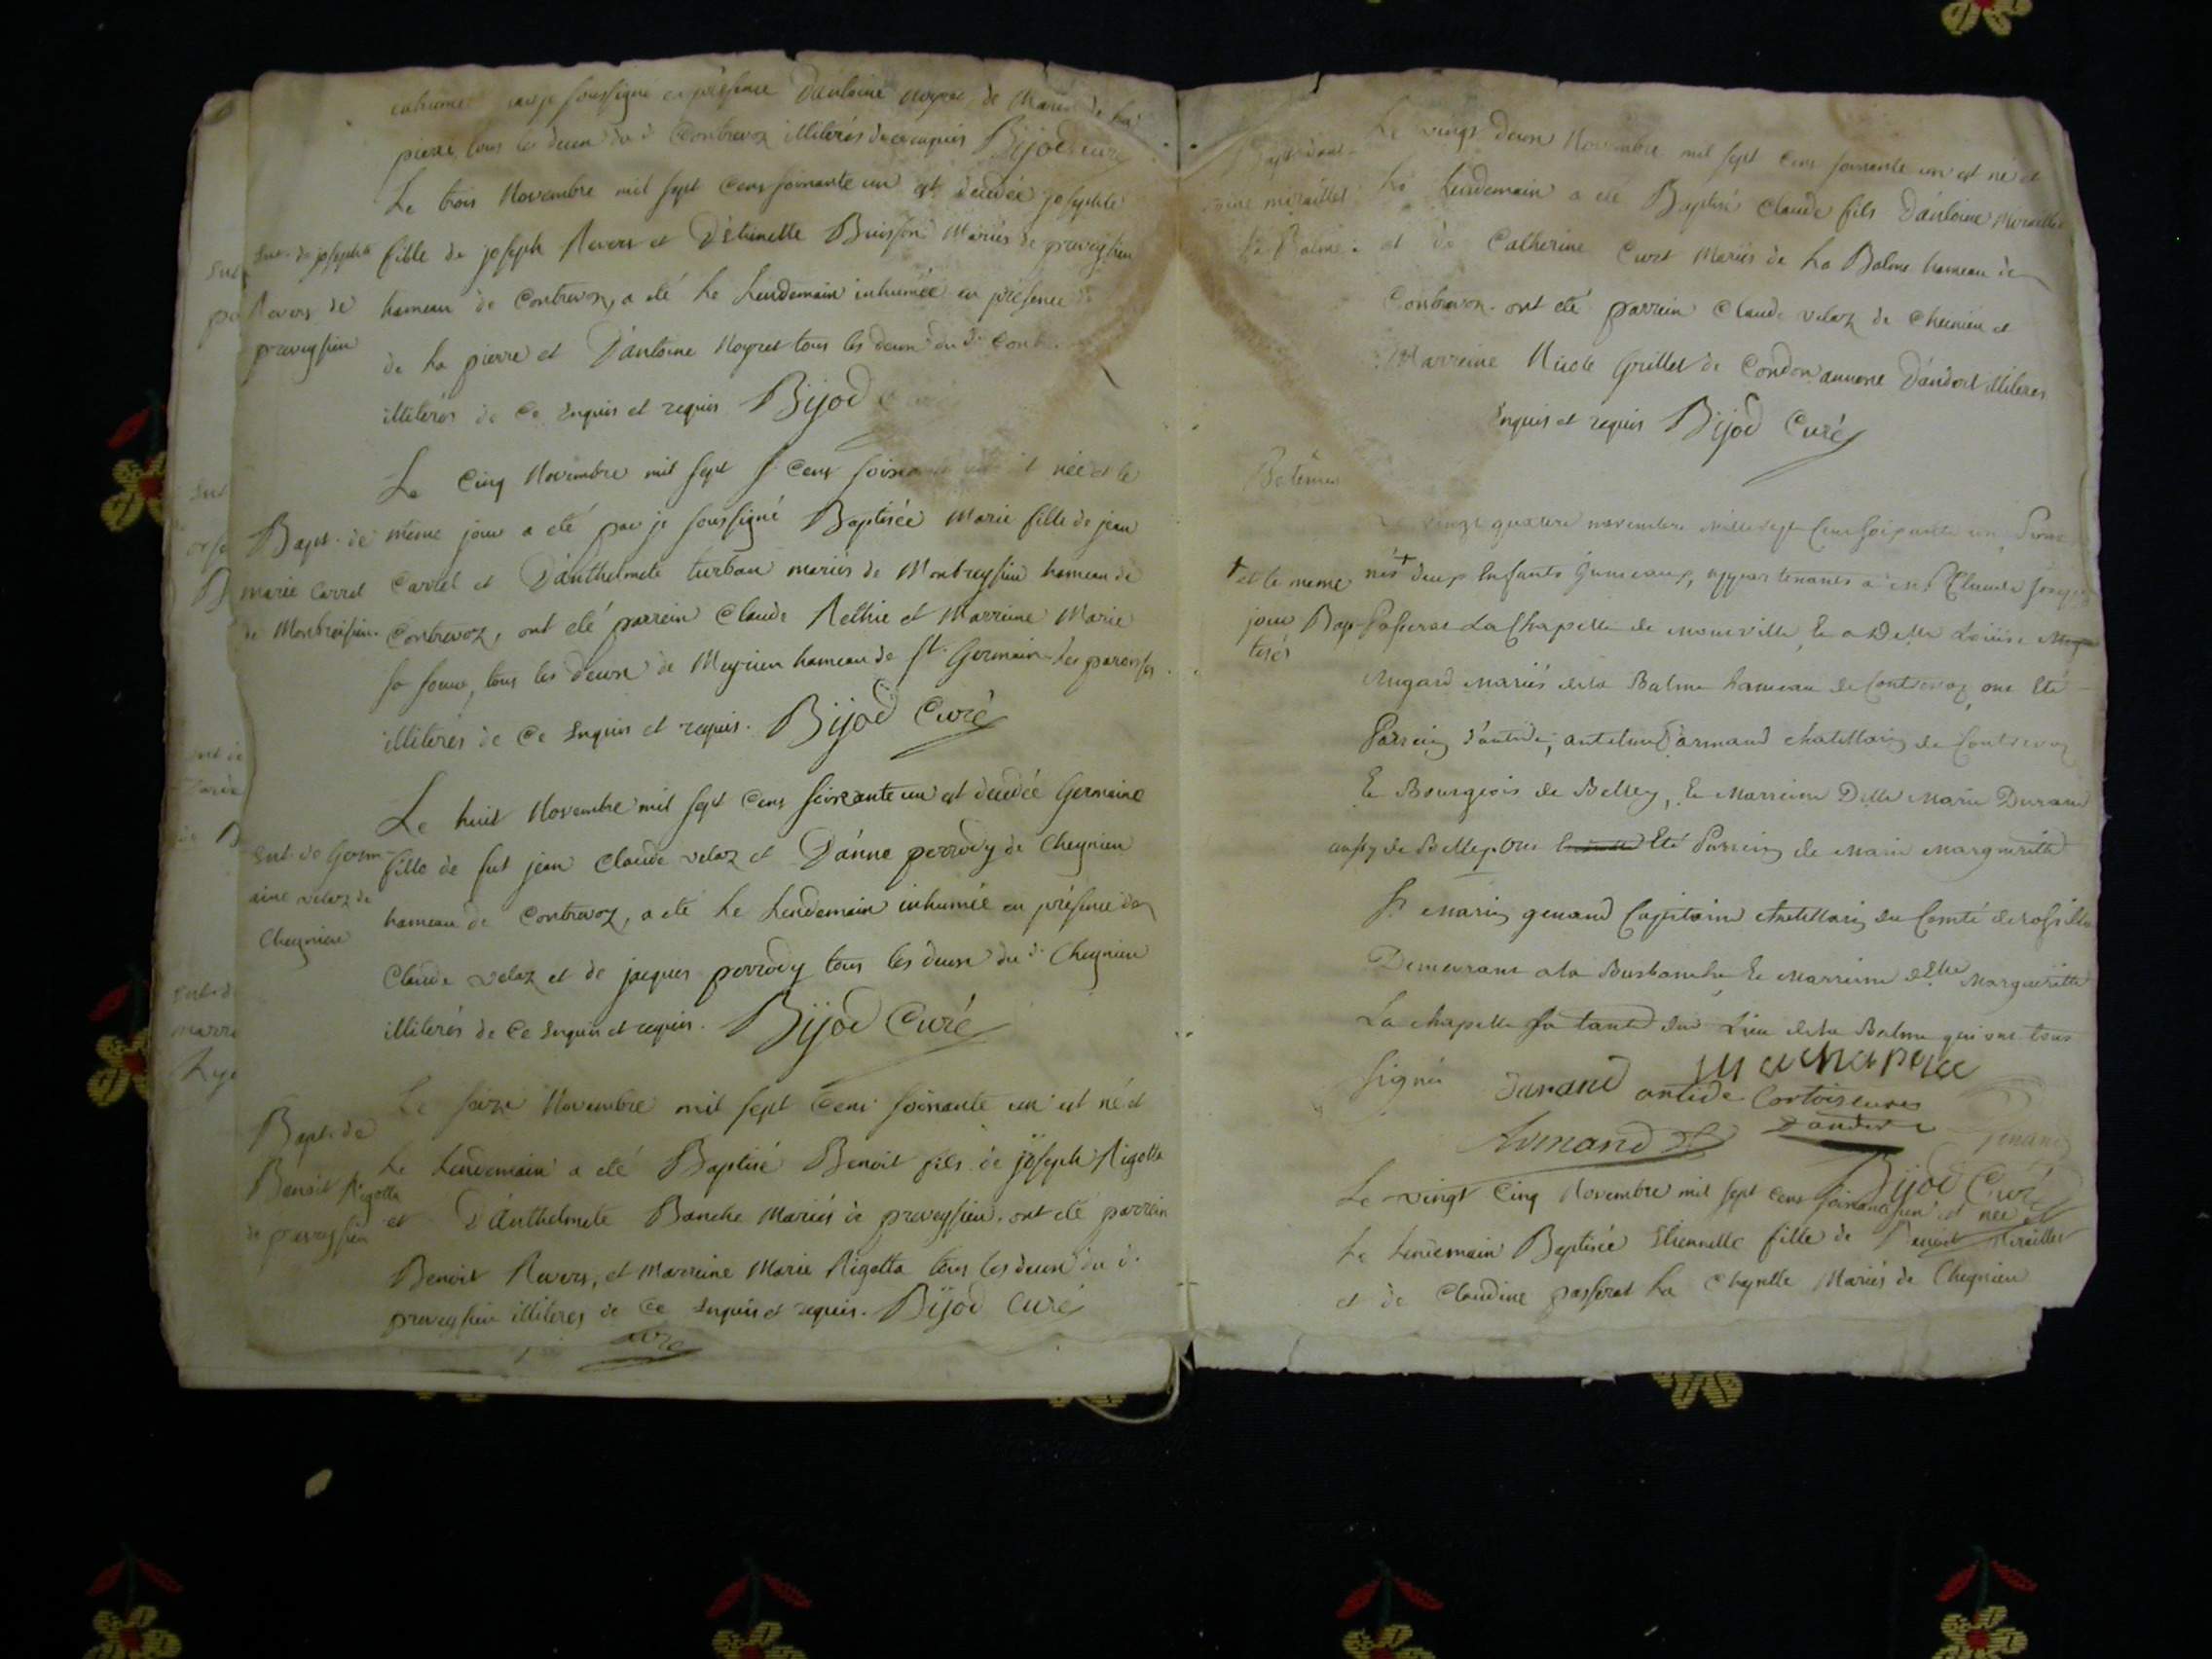 inhumé par je soussigné en présence D'antoine noyret, de Marin de la
pierre, tous les deux du d. Contrevoz illiterés de ce enquis Bijod curé
Le trois Novembre mil sept cens soixante un est decedée josephte
Sut. de josephte
Revers de
preveyssieu
fille de joseph Revers et D'etiennette Buisson Mariés de preveyssieu
hameau de Contrevoz, a eté le lendemain inhumée en présence
de la pierre et D'antoine Noyret tous les deux du d. Cont
illiterés de ce Enquis et requis Bijod
Le Cinq Novembre mil sept cens soixante née et le
Bapt. de
marie Carrel
de Montbreissieu.
même jour a eté par je soussigné Baptisée Marie fille de jean
Carrel et D'anthelmete turban mariés de Montbreyssieu hameau de
Contrevoz, ont eté parrein Claude Rethie et Marreine Marie
sa soeur, tous les deux de Meyrieu hameau de St. Germain les paroisses
illiterés de Ce Enquis et requis. Bijod Curé
Le huit Novembre mil sept cens soixante un est decedée Germaine
Sut. de Germ-
aine velaz de
Cheynieu
fille de fut jean Claude velaz et D'anne perrody de Cheynieu
hameau de Contrevoz, a eté le lendemain inhumée en présence de
Claude velaz et de jacques perrody tous les deux du d. Cheynieu
illiterés de Ce Enquis et requis. Bijod Curé
Le seize Novembre mil sept Cens soixante un est né et
Bapt. de
Benoit Rigolla
de preveyssieu
Le lendemain a eté Baptisé Benoit fils de joseph Rigolla
et D'Anthelmete Banche Mariés de preveyssieu. ont eté parrein
Benoit Revers, et Marreine Marie Rigolla tous les deux du d.
preveyssieu illiteres de Ce Enquis et requis. Bijod Curé
Le vingt deux Novembre mil sept Cens soixante un est né et
Bapt. d'ant-
oine miraillet
La Balme.
Le lendemain a eté Baptisé Claude fils D'antoine Miraillet
et de Catherine Curt Mariés de La Balme hameau de
Contrevoz. ont eté parrein Claude velaz de Cheinieu et
Marreine Nicole Grillet de Condon annexe D'andert illiteres
Enquis et requis Bijod Curé
Batêmes
vingt quatre novembre mille sept Cens soixante un, sont
+ et le meme
jour Bap-
tisés
nés + deux Enfants Jumeaux, appartenants a mr. Claude joseph
Passerat La Chapelle de monville, Et a Delle Loüise
Augard mariés de la Balme hameau de Contrevoz, ont Eté
Parrein d'antide, antelme armand chatellain de Contrevoz
Et Bourgeois de Belley, Et Marreine Delle Marie Durand
aussy de Belley ont Eté Parrein de Marie Margueritte
Sr. Marin genand Capitaine chatellain du Comté de rossillon
Demeurant a la Burbanche Et Marreine delle Margueritte
La chapelle sa tante du Lieu de la Balme qui ont tous
Signés Durand antide Cortois curé
D'andert
Armand Genand
Bijod Curé
Le vingt Cinq Novembre mil sept cens soixante un est née et
Le lendemain Baptisée Etiennette fille de Benoit Miraillet
et de Claudine passerat La Chapelle Mariés de Cheynieu